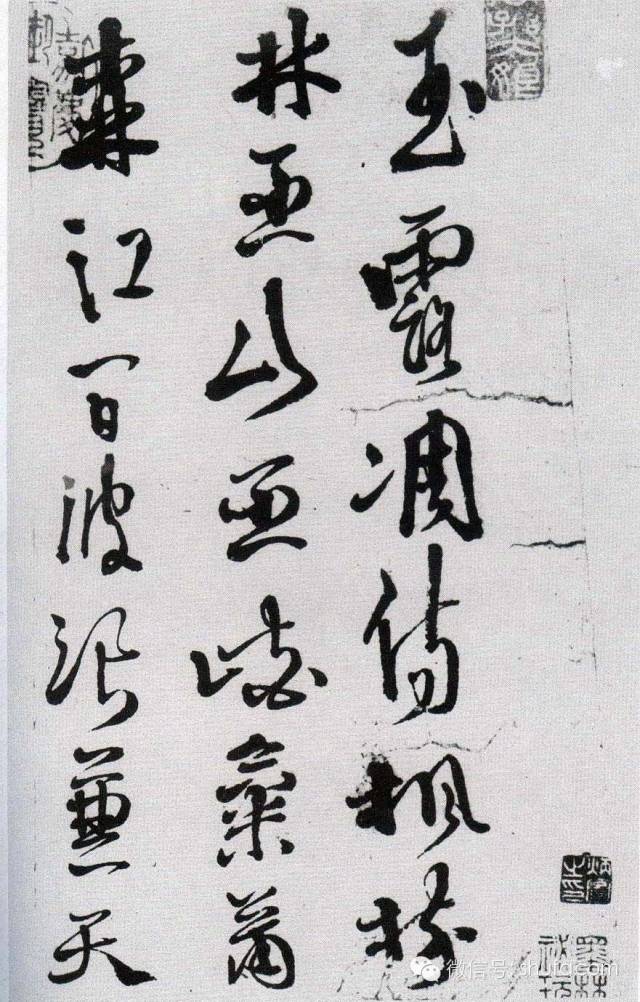 玉露凋傷楓樹
林巫山巫峽氣蕭
森江間波浪兼天
微信号: